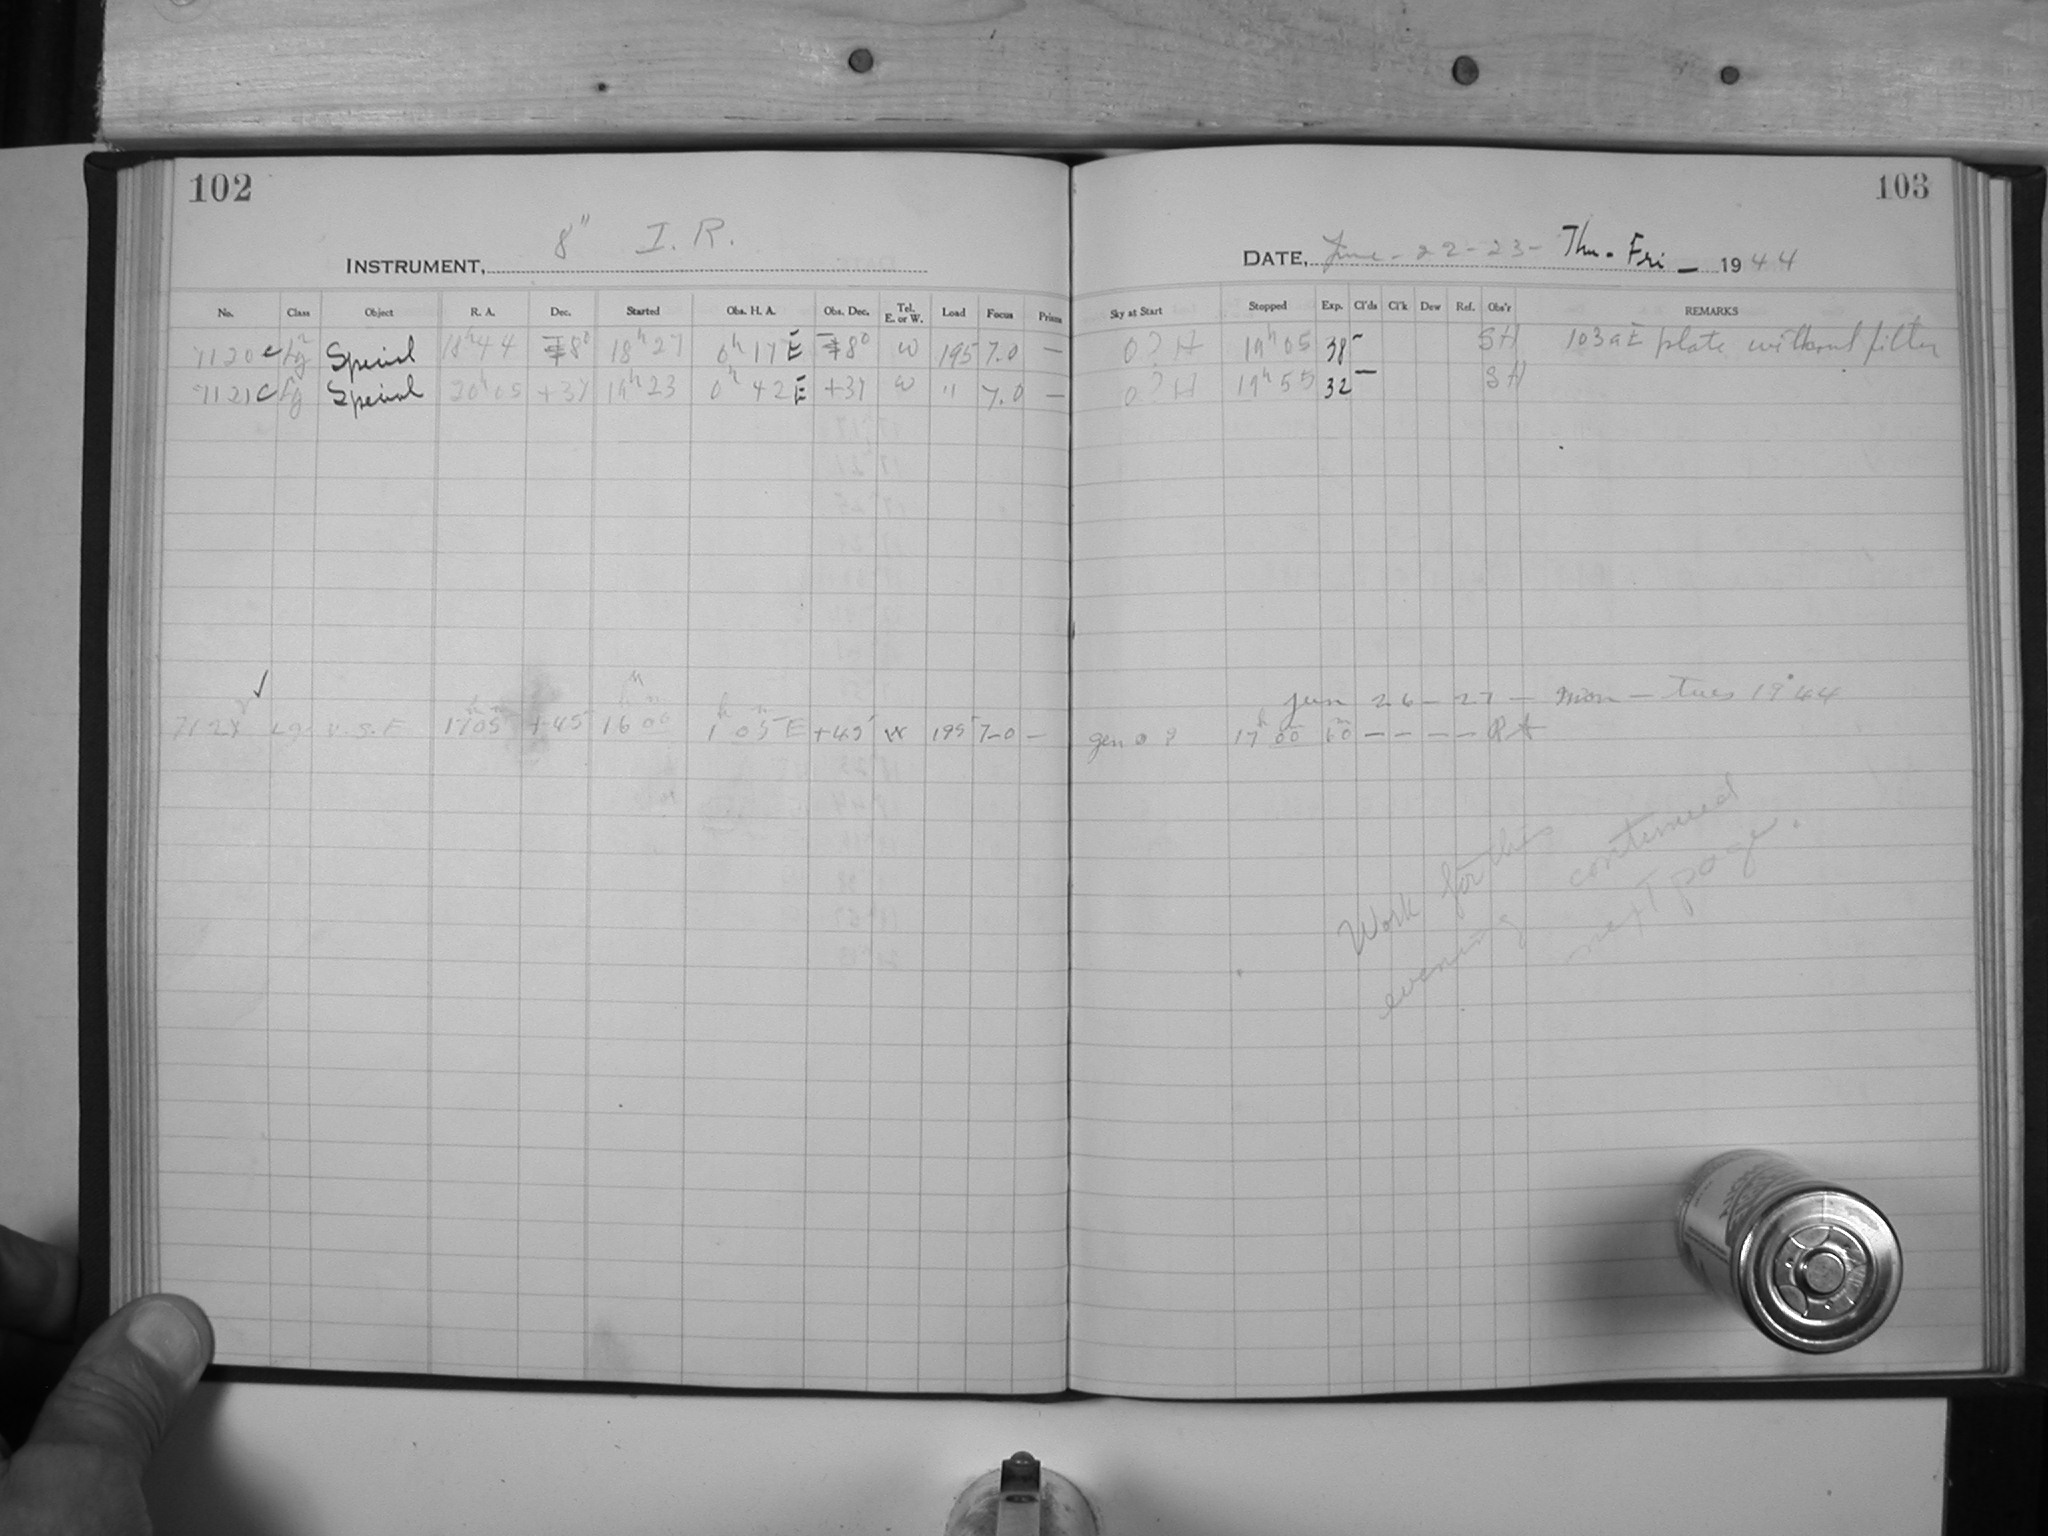 102
103
8" I. R.
INSTRUMENT,
DATE, June - 22 - 23 - Thu. - Fri - 1944
No. Class Object R. A. Dec. Started Obs. H. A. Obs. Dec. Tel. E. or W. Load Focus Prism Sky at Start Stopped Exp. Cl'ds Cl'k Dew Ref. Obs'r REMARKS
7120 c Special 18h 44 8° 18h 27 0h 17 E 8° W 195 7.0 — 0 ? H 19h 05 38 - SH 103aE plate without filter
7121 c Special 20h 05 +37 19h 23 0h 42 E +37 W " 7.0 — 0 ? H 19h 55 32 - SH
✓
Jun 26 - 27 - Mon - Tues 1944
1705 +45 16h 00m 1h 05m E +45 W 195 7-0 - gen 0 ? 17h 00 60m — — — — RA
Work for this
evening continued
next page.